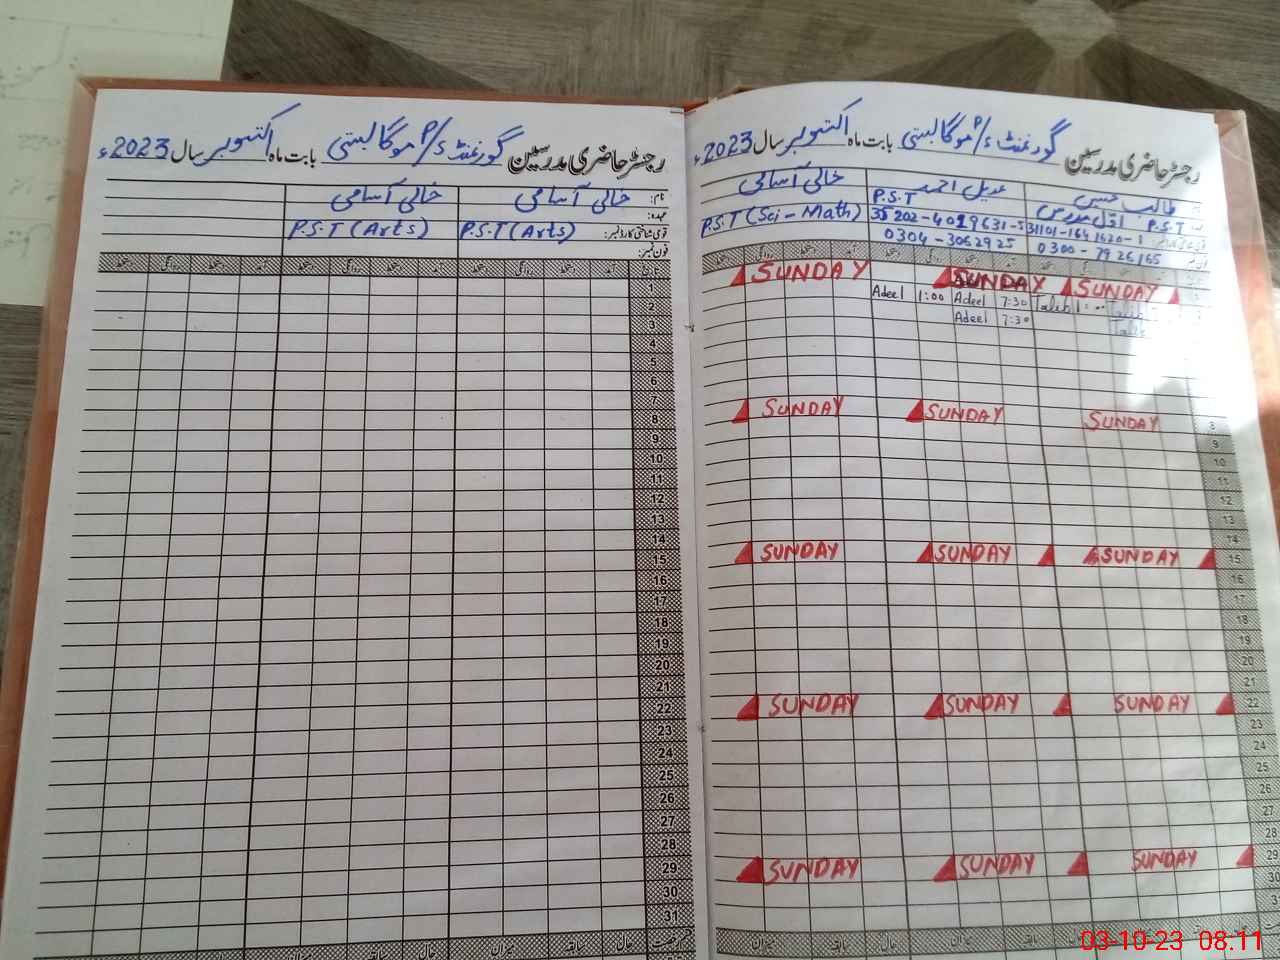 رجسٹر حاضری مدرسین گورنمنٹ P/s موگا بستی بابت ماہ اکتوبر سال 2023ء
نام: خالی آسامی خالی آسامی
عہدہ:
قومی شناختی کارڈ نمبر: P.S.T (Arts) P.S.T (Arts)
فون نمبر:
1
2
3
4
5
6
7
8
9
10
11
12
13
14
15
16
17
18
19
20
21
22
23
24
25
26
27
28
29
30
31
میزان سابقہ حال میزان سابقہ حال
رجسٹر حاضری مدرسین گورنمنٹ P/s موگا بستی بابت ماہ اکتوبر سال 2023ء
طالب حسین عدیل احمد خالی آسامی
P.S.T اوّل مدرس P.S.T
31101-1641620-1 35202-4019631-5 P.S.T (Sci-Math)
0300-7926165 0304-3062925
SUNDAY SUNDAY SUNDAY
Adeel 1:00 Adeel 7:30 Taleb
Adeel 7:30 Taleb
SUNDAY SUNDAY SUNDAY 8
9
10
11
12
13
14
SUNDAY SUNDAY SUNDAY 15
16
17
18
19
20
21
SUNDAY SUNDAY SUNDAY 22
23
24
25
26
27
28
SUNDAY SUNDAY SUNDAY 29
30
میزان سابقہ حال میزان سابقہ حال
03-10-23 08:11